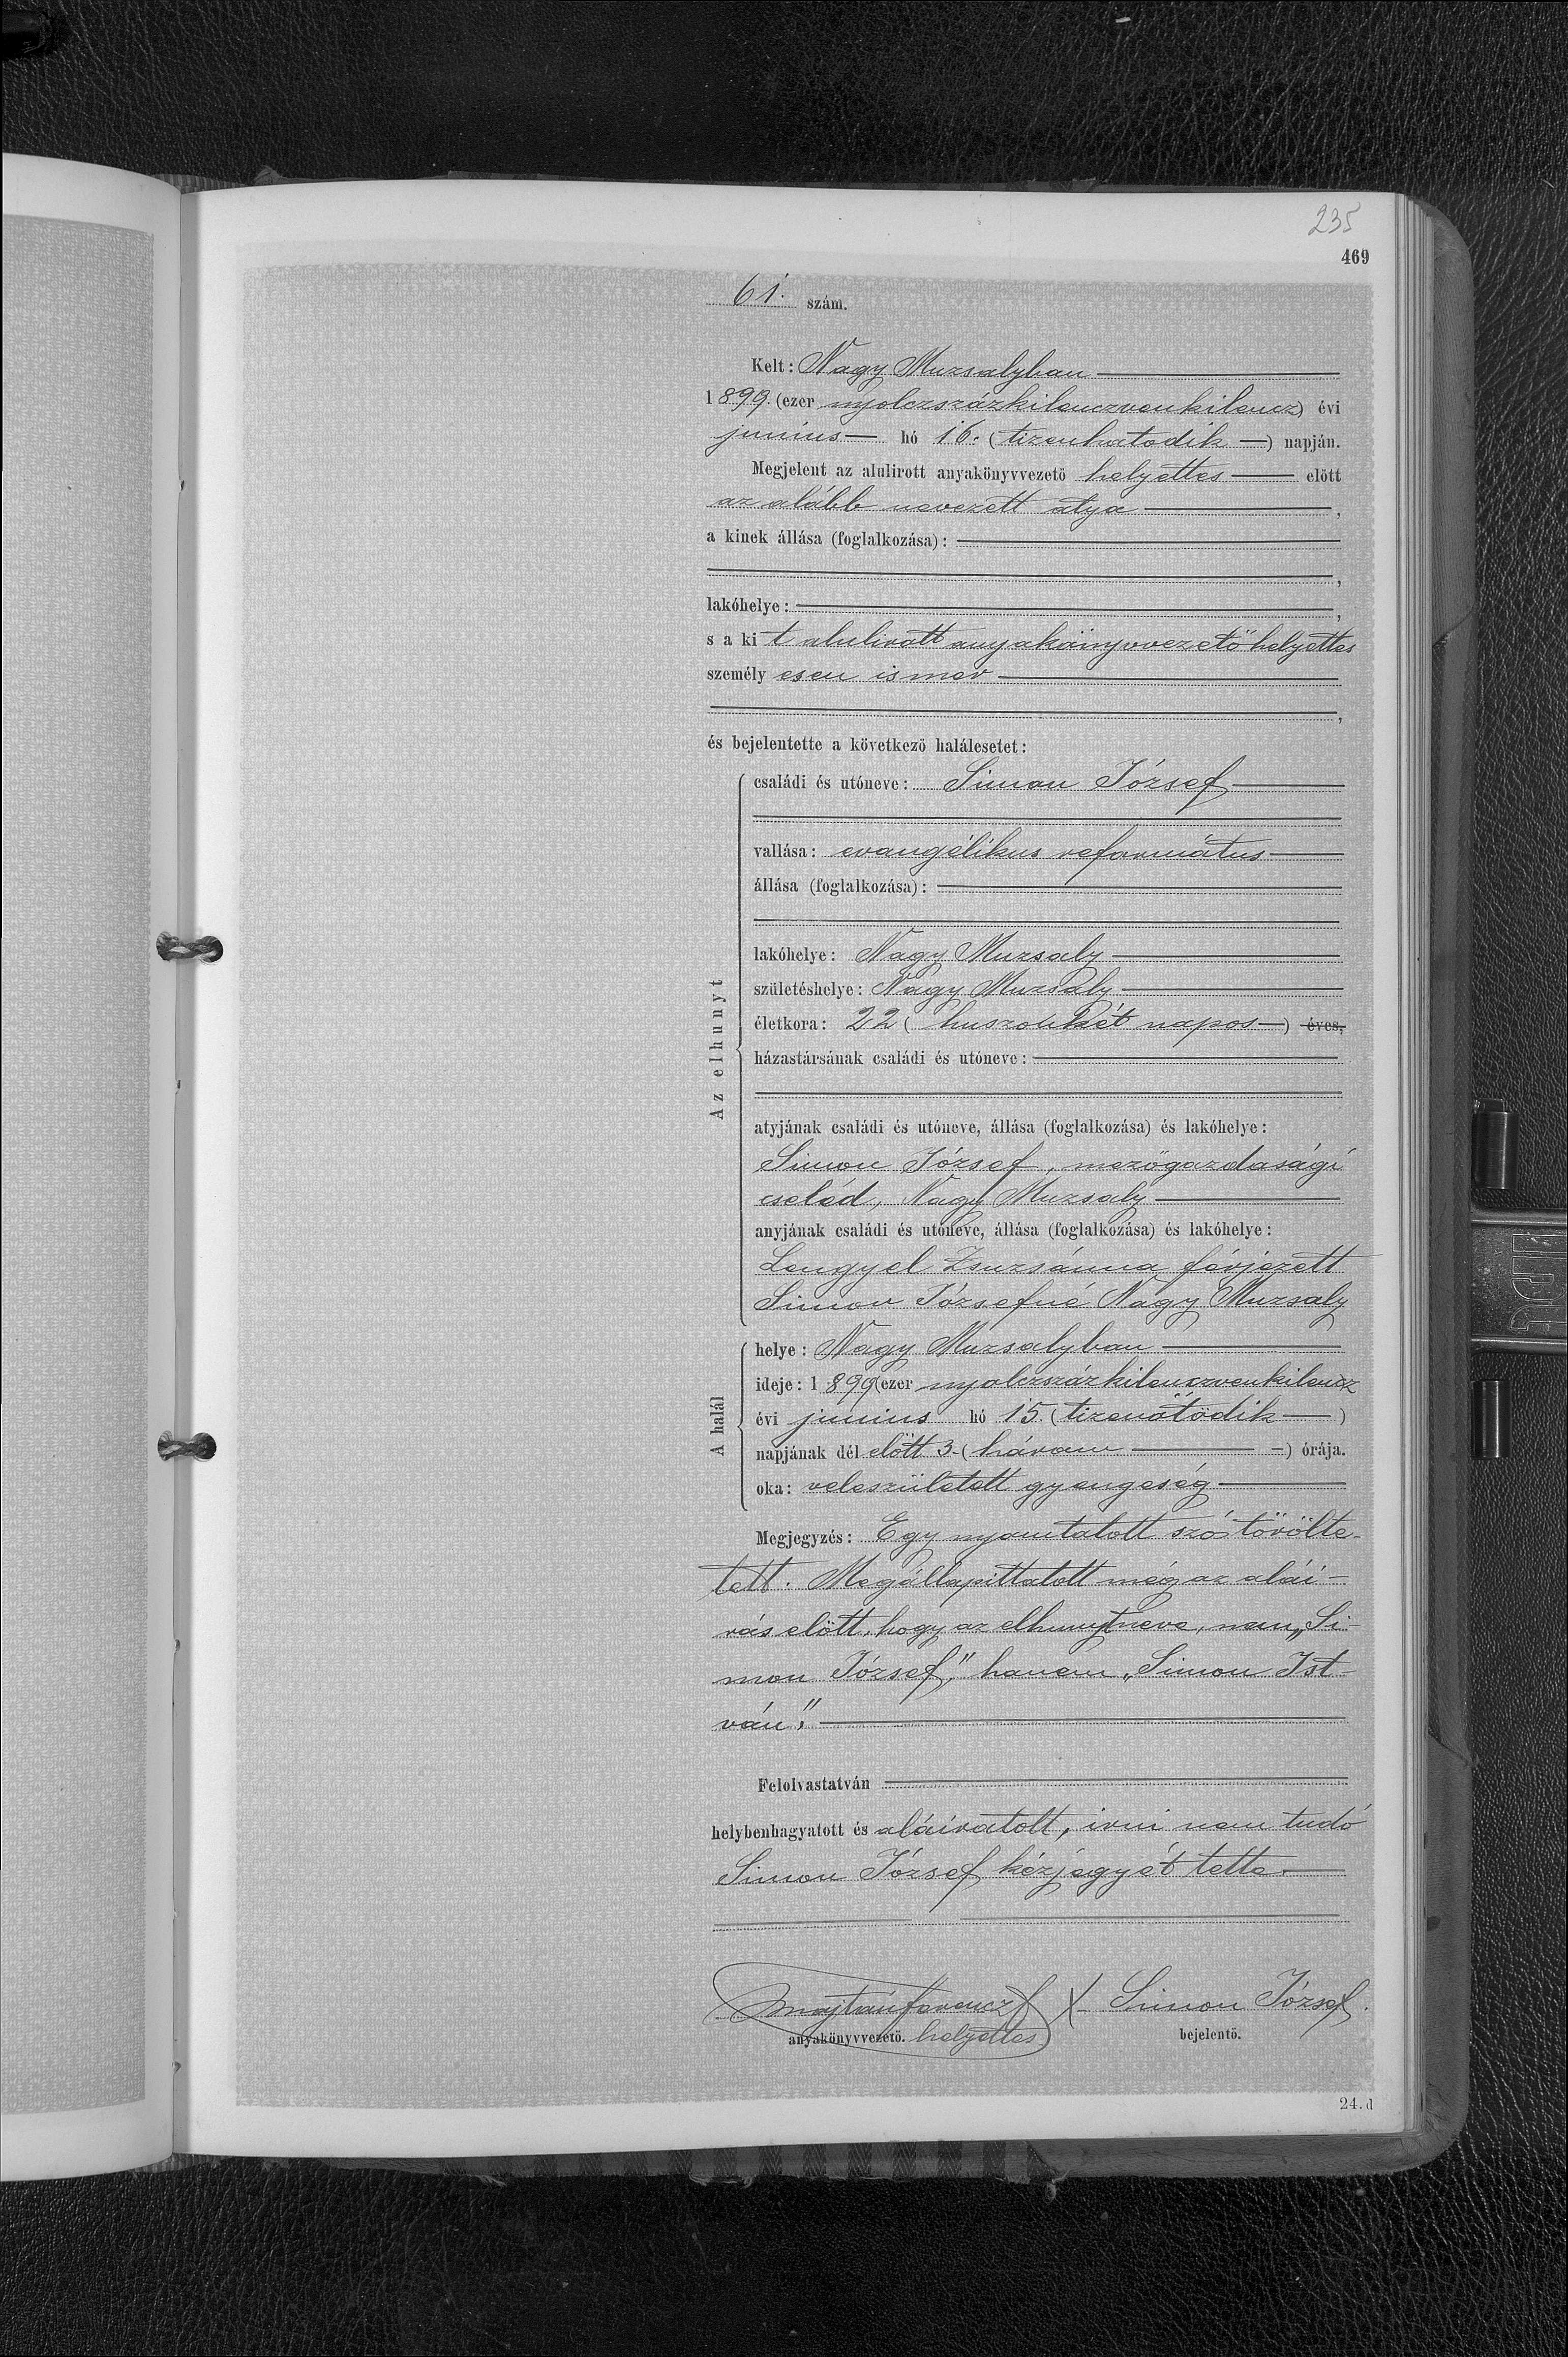 235
469
61. szám.
Kelt: Nagy Muzsalyban
1899. (ezer nyolczszázkilenczvenkilencz) évi
junius hó 16. (tizenhatodik) napján.
Megjelent az alulirott anyakönyvvezető helyettes előtt
az alább nevezett atya,
a kinek állása (foglalkozása):
lakóhelye:
s a kit alulirott anyakönyvvezető helyettes
személyesen ismer
és bejelentette a következő halálesetet:
Az elhunyt
családi és utóneve: Simon József
vallása: evangélikus református
állása (foglalkozása):
lakóhelye: Nagy Muzsaly
születéshelye: Nagy Muzsaly
életkora: 22 (huszonkét napos) éves,
házastársának családi és utóneve:
atyjának családi és utóneve, állása (foglalkozása) és lakóhelye:
Simon József, mezőgazdasági
cseléd, Nagy Muzsaly
anyjának családi és utóneve, állása (foglalkozása) és lakóhelye:
Lengyel Zsuzsánna férjezett
Simon Józsefné Nagy Muzsaly
A halál
helye: Nagy Muzsalyban
ideje: 1899 (ezer nyolczszázkilenczvenkilencz
évi junius hó 15. (tizenötödik)
napjának dél előtt 3. (három) órája.
oka: veleszületett gyengeség
Megjegyzés: Egy nyomtatott szó törölte-
tett. Megállapittatott még az alái-
rás előtt, hogy az elhunyt neve, nem „Si-
mon József," hanem „Simon Ist-
ván".
Felolvastatván
helybenhagyatott és aláiratott, irni nem tudó
Simon József kézjegyét tette.
Majtán Ferencz X Simon József.
anyakönyvvezető. helyettes bejelentő.
24. d